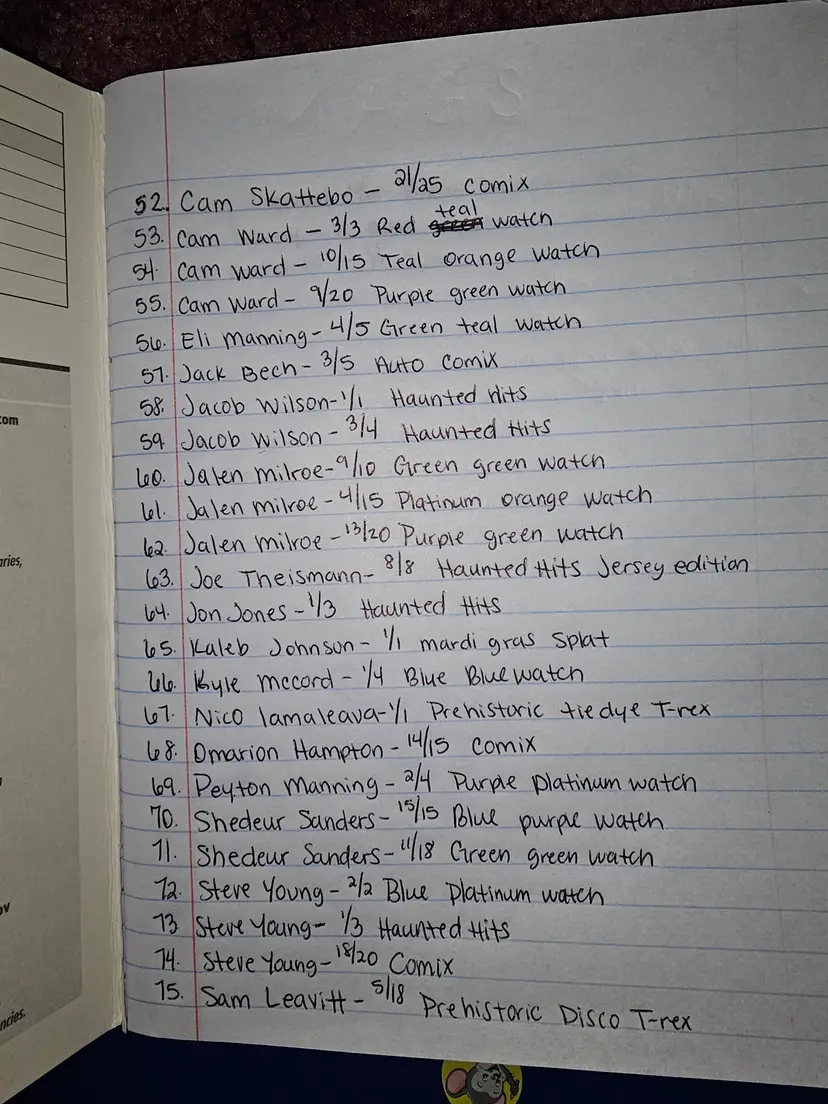 52. Cam Skattebo - 21/25 Comix
53. Cam Ward - 3/3 Red teal watch
54. Cam Ward - 10/15 Teal Orange Watch
55. Cam Ward - 9/20 Purple green watch
56. Eli Manning - 4/5 Green teal watch
57. Jack Bech - 3/5 Auto Comix
58. Jacob Wilson - 1/1 Haunted Hits
59. Jacob Wilson - 3/4 Haunted Hits
60. Jalen Milroe - 9/10 Green green watch
61. Jalen Milroe - 4/15 Platinum orange watch
62. Jalen Milroe - 13/20 Purple green watch
63. Joe Theismann - 8/8 Haunted Hits Jersey edition
64. Jon Jones - 1/3 Haunted Hits
65. Kaleb Johnson - 1/1 mardi gras Splat
66. Kyle McCord - 1/4 Blue Blue watch
67. Nico Iamaleava - 1/1 Prehistoric tiedye T-rex
68. Omarion Hampton - 14/15 Comix
69. Peyton Manning - 2/4 Purple platinum watch
70. Shedeur Sanders - 15/15 Blue purple watch
71. Shedeur Sanders - 11/18 Green green watch
72. Steve Young - 2/2 Blue Platinum watch
73 Steve Young - 1/3 Haunted Hits
74. Steve Young - 18/20 Comix
75. Sam Leavitt - 5/18 Prehistoric Disco T-rex